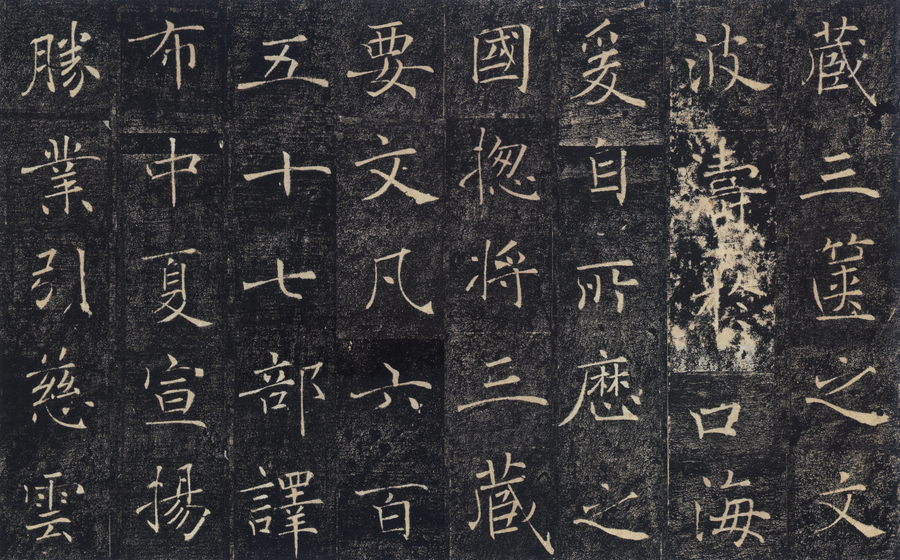 藏三篋之文
波濤於口海
爰自所歷之
國揔将三藏
要文凡六百
五十七部譯
布中夏宣揚
勝業引慈雲